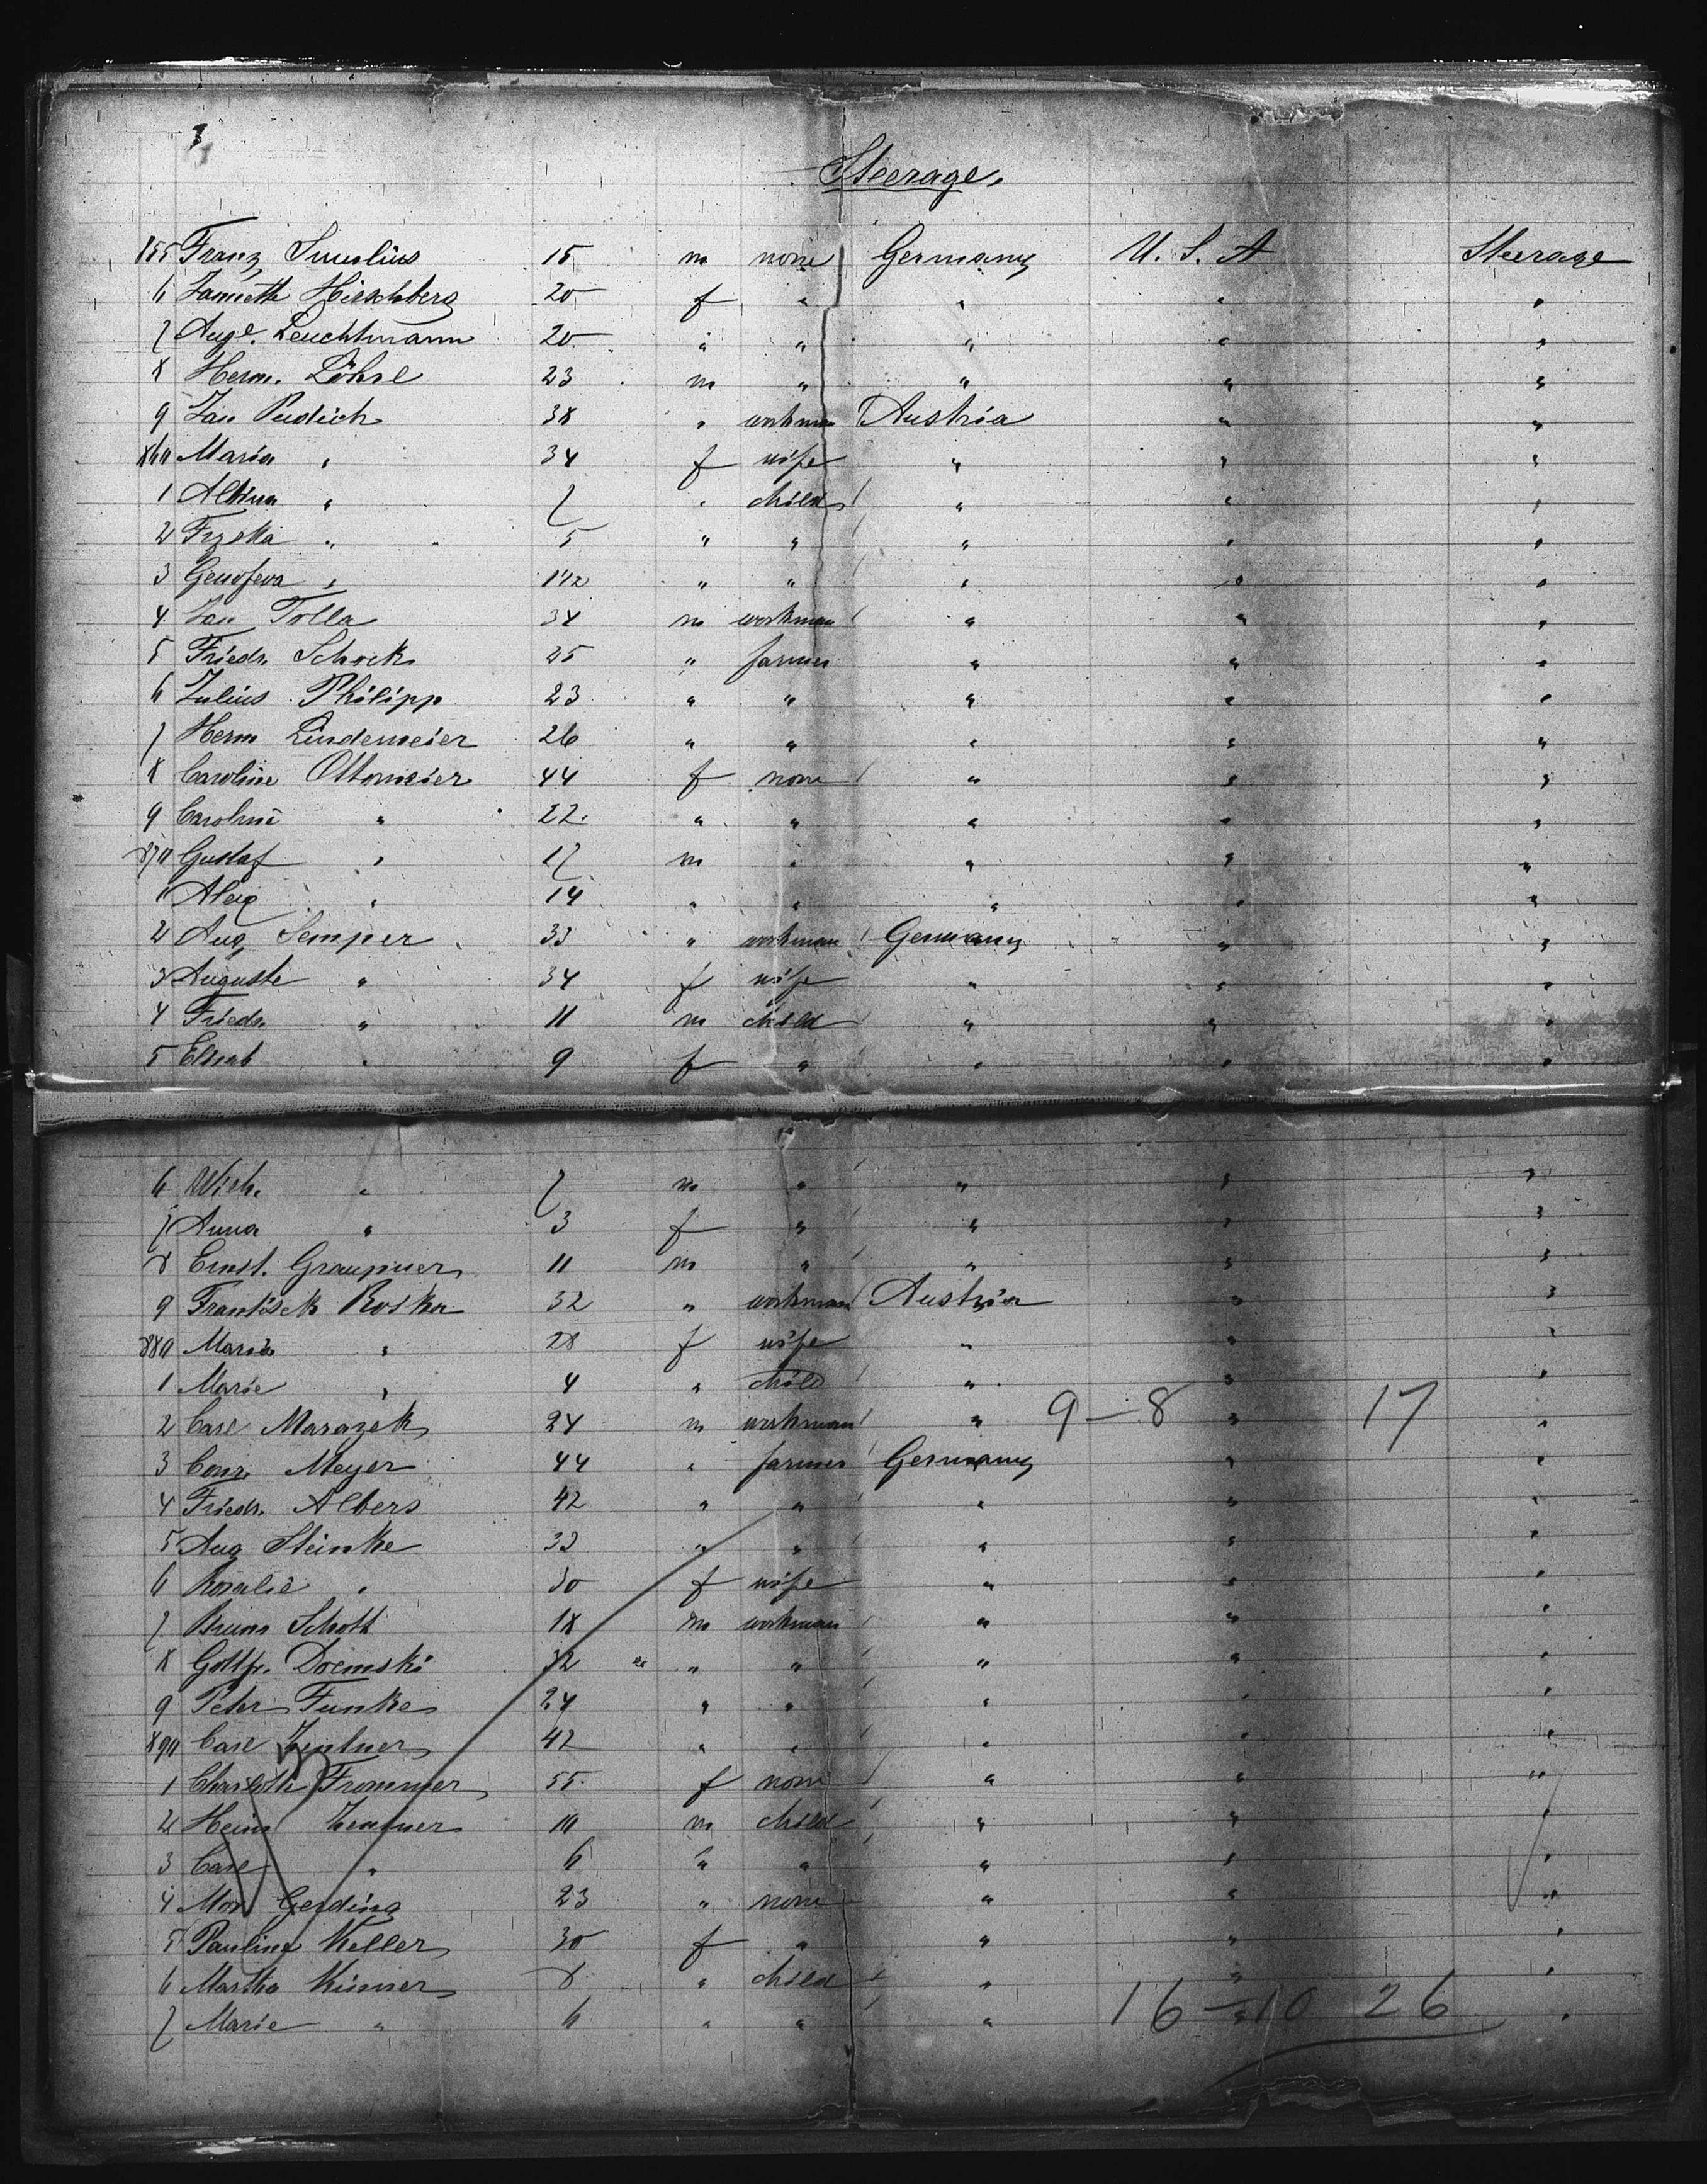 Steerage.
855 Franz 15 m none Germany U. S. A Steerage
6 Hirschberg 20 f " " " "
7 Leuchtmann 20 " " " " "
8 Herm. Löhse 23 m " " " "
9 Jan 38 " workman Austria " "
860 Maria " 34 f wife " " "
1 Albina " 7 " child " " "
2 " 5 " " " " "
3 Genofeva " 1 1/2 " " " " "
4 Jan Tolla 34 m workman " " "
5 Friedr. Schock 25 " farmer " " "
6 Julius Philipp 23 " " " " "
7 Herm Lindemeier 26 " " " " "
8 Caroline Ottomeier 44 f none " " "
9 Caroline " 22 " " " " "
870 Gustaf " 17 m " " " "
1 Alex " 14 " " " " "
2 Aug Semper 33 " workman Germany " "
3 Auguste " 34 f wife " " "
4 Friedr. " 11 m child " " "
5 Elisab " 9 f " " " "
6 Wilh. " 7 m " " " "
7 Anna " 3 f " " " "
8 Ernst. Graupner 11 m " " " "
9 Frantisek Koska 32 " workman Austria " "
880 Maria " 28 f wife " " "
1 Marie " 4 " child " " "
2 Carl Marazek 24 m workman " 9-8 " 17 "
3 Conr. Meyer 44 " farmer Germany " "
4 Friedr. Albers 42 " " " " "
5 Aug Steinke 33 " " " " "
6 Rosalie " 30 f wife " " "
7 Bruno Schott 18 m workman " " "
8 Gottfr. Doemski 32 " " " " "
9 Peter Funke 24 " " " " "
890 Carl Zentner 42 " " " " "
1 Charlotte Frommer 55 f none " " "
2 Heinr Zentner 10 m child " " "
3 Carl " 6 " " " " "
4 Gerding 23 " none " " "
5 Pauline Keller 30 f " " " "
6 Martha 8 " child " " "
7 Marie " 6 " " " 16-10 " 26 "